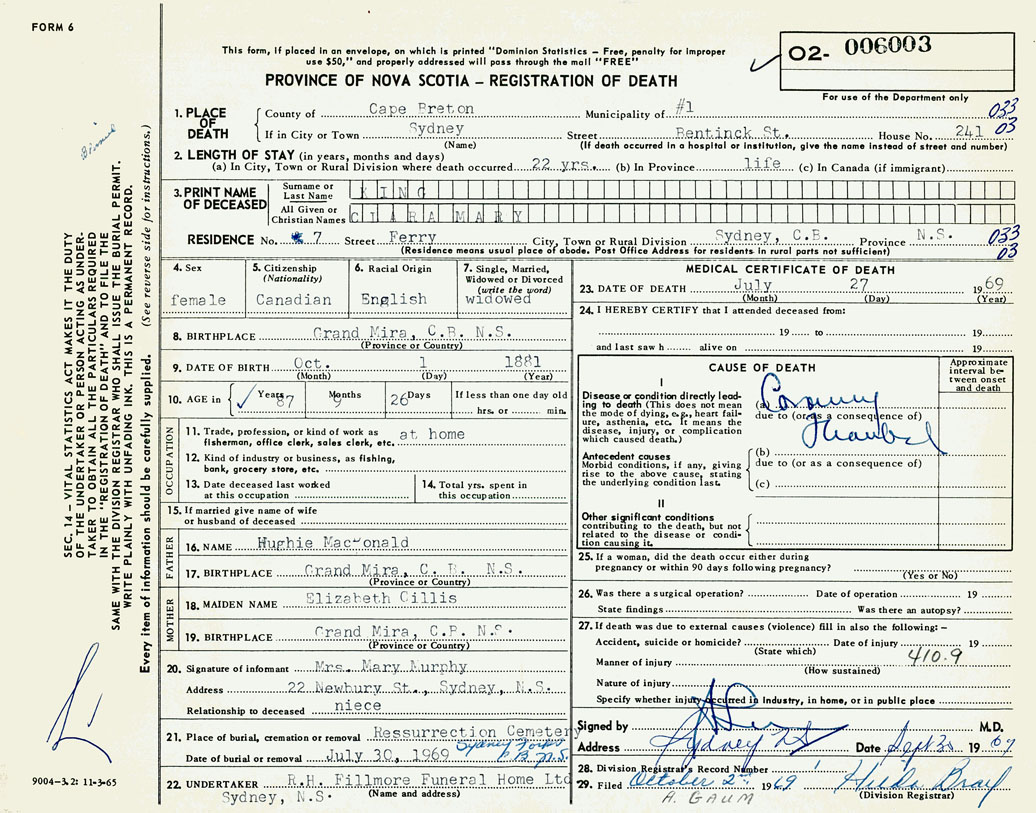 FORM 6
This form, if placed in an envelope, on which is printed "Dominion Statistics – Free, penalty for improper
use $50," and properly addressed will pass through the mail "FREE"
PROVINCE OF NOVA SCOTIA – REGISTRATION OF DEATH
O2- 006003
For use of the Department only
1. PLACE OF DEATH County of Cape Breton Municipality of #1 033
If in City or Town Sydney Street Bentinck St. House No. 241 03
(Name) (If death occurred in a hospital or institution, give the name instead of street and number)
2. LENGTH OF STAY (in years, months and days)
(a) In City, Town or Rural Division where death occurred 22 yrs. (b) In Province life (c) In Canada (if immigrant)
3. PRINT NAME OF DECEASED Surname or Last Name KING
All Given or Christian Names CLARA MARY
RESIDENCE No. 7 Street Ferry City, Town or Rural Division Sydney, C.B. Province N.S. 033
(Residence means usual place of abode. Post Office Address for residents in rural parts not sufficient) 03
4. Sex female
5. Citizenship (Nationality) Canadian
6. Racial Origin English
7. Single, Married, Widowed or Divorced (write the word) widowed
8. BIRTHPLACE Grand Mira, C.B. N.S.
(Province or Country)
9. DATE OF BIRTH Oct. 1 1881
(Month) (Day) (Year)
10. AGE in Years 87 Months 9 26 Days If less than one day old
hrs. or min.
OCCUPATION
11. Trade, profession, or kind of work as at home
fisherman, office clerk, sales clerk, etc.
12. Kind of industry or business, as fishing,
bank, grocery store, etc.
13. Date deceased last worked
at this occupation
14. Total yrs. spent in
this occupation
15. If married give name of wife
or husband of deceased
FATHER
16. NAME Hughie MacDonald
17. BIRTHPLACE Grand Mira, C. B. N.S.
(Province or Country)
MOTHER
18. MAIDEN NAME Elizabeth Gillis
19. BIRTHPLACE Grand Mira, C.B. N.S.
(Province or Country)
20. Signature of informant Mrs. Mary Murphy
Address 22 Newbury St., Sydney, N.S.
Relationship to deceased niece
21. Place of burial, cremation or removal Ressurrection Cemetery
Sydney Forks
Date of burial or removal July 30, 1969 C.B. N.S.
22. UNDERTAKER R.H. Fillmore Funeral Home Ltd
Sydney, N.S. (Name and address)
MEDICAL CERTIFICATE OF DEATH
23. DATE OF DEATH July 27 1969
(Month) (Day) (Year)
24. I HEREBY CERTIFY that I attended deceased from:
19 to 19
and last saw h alive on 19
CAUSE OF DEATH
Approximate interval between onset and death
I
Disease or condition directly leading to death (This does not mean the mode of dying, e.g., heart failure, asthenia, etc. It means the disease, injury, or complication which caused death.)
(a) Coronary
due to (or as a consequence of)
Thrombosis
Antecedent causes
Morbid conditions, if any, giving rise to the above cause, stating the underlying condition last.
(b)
due to (or as a consequence of)
(c)
II
Other significant conditions
contributing to the death, but not related to the disease or condition causing it.
25. If a woman, did the death occur either during
pregnancy or within 90 days following pregnancy?
(Yes or No)
26. Was there a surgical operation? Date of operation 19
State findings Was there an autopsy?
27. If death was due to external causes (violence) fill in also the following: –
Accident, suicide or homicide? Date of injury 19
(State which) 410.9
Manner of injury
(How sustained)
Nature of injury
Specify whether injury occurred in Industry, in home, or in public place
Signed by M.D.
Address Sydney NS Date Sept 30 1969
28. Division Registrar's Record Number
29. Filed October 2nd 1969 Hilda Bray
A. GAUM (Division Registrar)
SEC. 14 – VITAL STATISTICS ACT MAKES IT THE DUTY
OF THE UNDERTAKER OR PERSON ACTING AS UNDER-
TAKER TO OBTAIN ALL THE PARTICULARS REQUIRED
IN THE "REGISTRATION OF DEATH" AND TO FILE THE
SAME WITH THE DIVISION REGISTRAR WHO SHALL ISSUE THE BURIAL PERMIT.
WRITE PLAINLY WITH UNFADING INK. THIS IS A PERMANENT RECORD.
Every item of information should be carefully supplied. (See reverse side for instructions.)
9004-3.2: 11-3-65